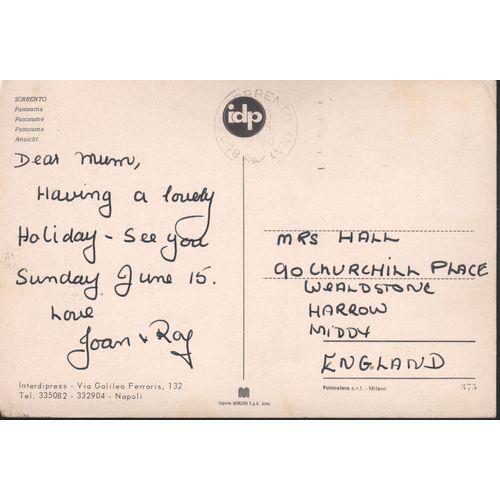 SORRENTO
Panorama
Panorame
Panorama
Ansicht
idp
SORRENTO
Dear Mum,
Having a lovely
Holiday - See you
Sunday June 15.
Love
Joan & Roy
MRS HALL
90 CHURCHILL PLACE
WEALDSTONE
HARROW
MIDDX
ENGLAND
Interdipress - Via Galileo Ferraris, 132
Tel. 335082 - 332904 - Napoli
Fotocelere s.r.l. - Milano
375